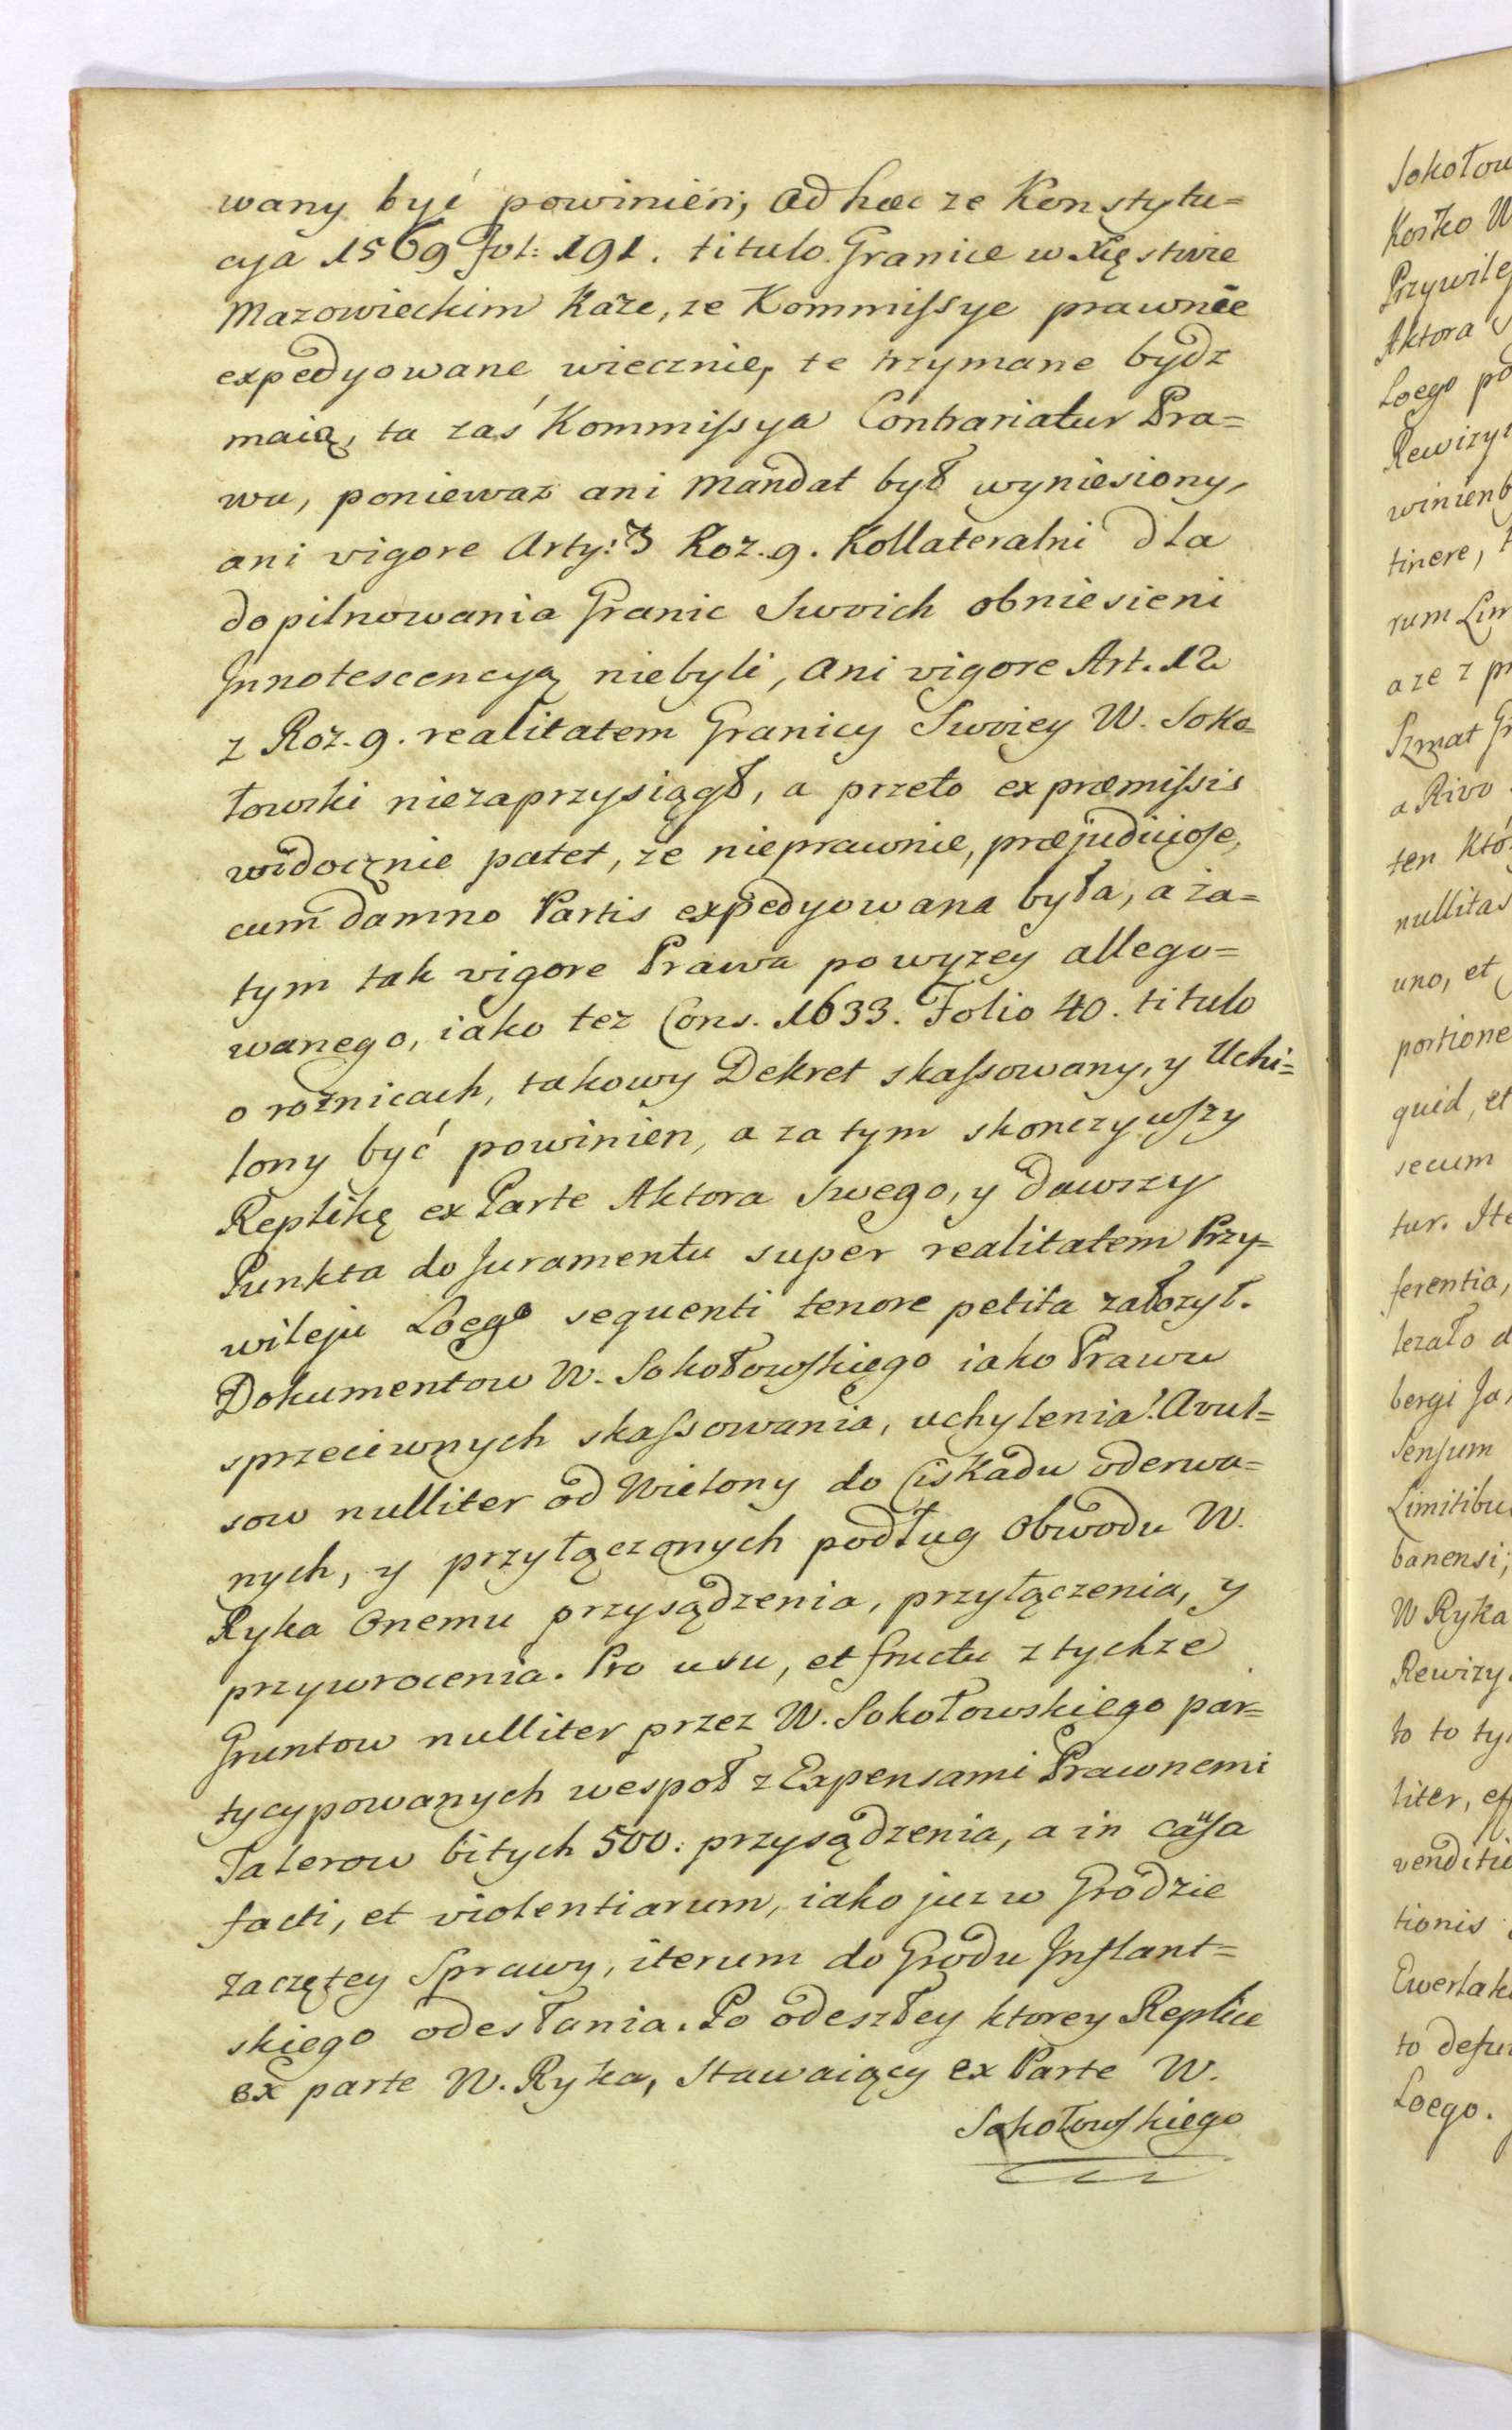 wany być powinien; ad haec ze Konstytu=
cya 1569 fol: 191. titulo. Granice w Xięstwie
Mazowieckim każe, ze Kommissye prawnie
expedyowane wiecznie, te trzymane bydz
maią, ta zaś Kommissya Contrariatur Pra=
wu, poniewaz ani Mandat był wyniesiony,
ani vigore Arty: 3 Roz. 9. Kollateralni dla
dopilnowania Granic Swoich obniesieni
Innotescencyą niebyli, ani vigore Art. 12
z Roz. 9. realitatem Granicy Swoiey W. Soko=
łowski niezaprzysiągł, a przeto ex præmissis
widocznie patet, ze nieprawnie, præjudiciose,
cum damno Partis expedyowana była, a za=
tym tak vigore Prawa powyzey allego=
wanego, iako tez Cons. 1633. Folio 40. titulo
o roznicach, takowy Dekret skassowany, y Uchi=
lony być powinien, a za tym skonczywszy
Replikę ex Parte Aktora Swego, y dawszy
Punkta do Juramentu super realitatem Przy=
wileju Loego sequenti tenore petita załozył.
Dokumentow W. Sokołowskiego iako Prawu
sprzeciwnych skassowania, uchylenia! Avul=
sow nulliter od Wielony do Ciskadu oderwa=
nych, y przyłączonych podług Obwodu W.
Ryka Onemu przysądzenia, przyłączenia, y
przywrocenia. Pro usu, et fructu z tychze
Gruntow nulliter przez W. Sokołowskiego par=
tycypowanych wespoł z Expensami Prawnemi
Talerow bitych 500: przysądzenia, a in causa
facti, et violentiarum, iako juz w Grodzie
zaczętey Sprawy, iterum do Grodu Inflant=
skiego odesłania. Po odeszłey ktorey Replice
ex parte W. Ryka, Stawaiący ex Parte W.
Sokołowskiego
Sokołow
Kosko W
Przywile
Aktora
Loego po
Rewizy
winien
tinere,
rum Lim
a ze z p
Szmat G
a Rivo
ten Któ
nullitas
uno, et
portione
quid, et
secum
tur. Ite
ferentia,
lezało d
bergi Ja
Sensum
Limitibu
banensi;
W Ryka
Rewizy
to to ty
liter, ef
venditi
tionis
Ewerlak
to defu
Loego.